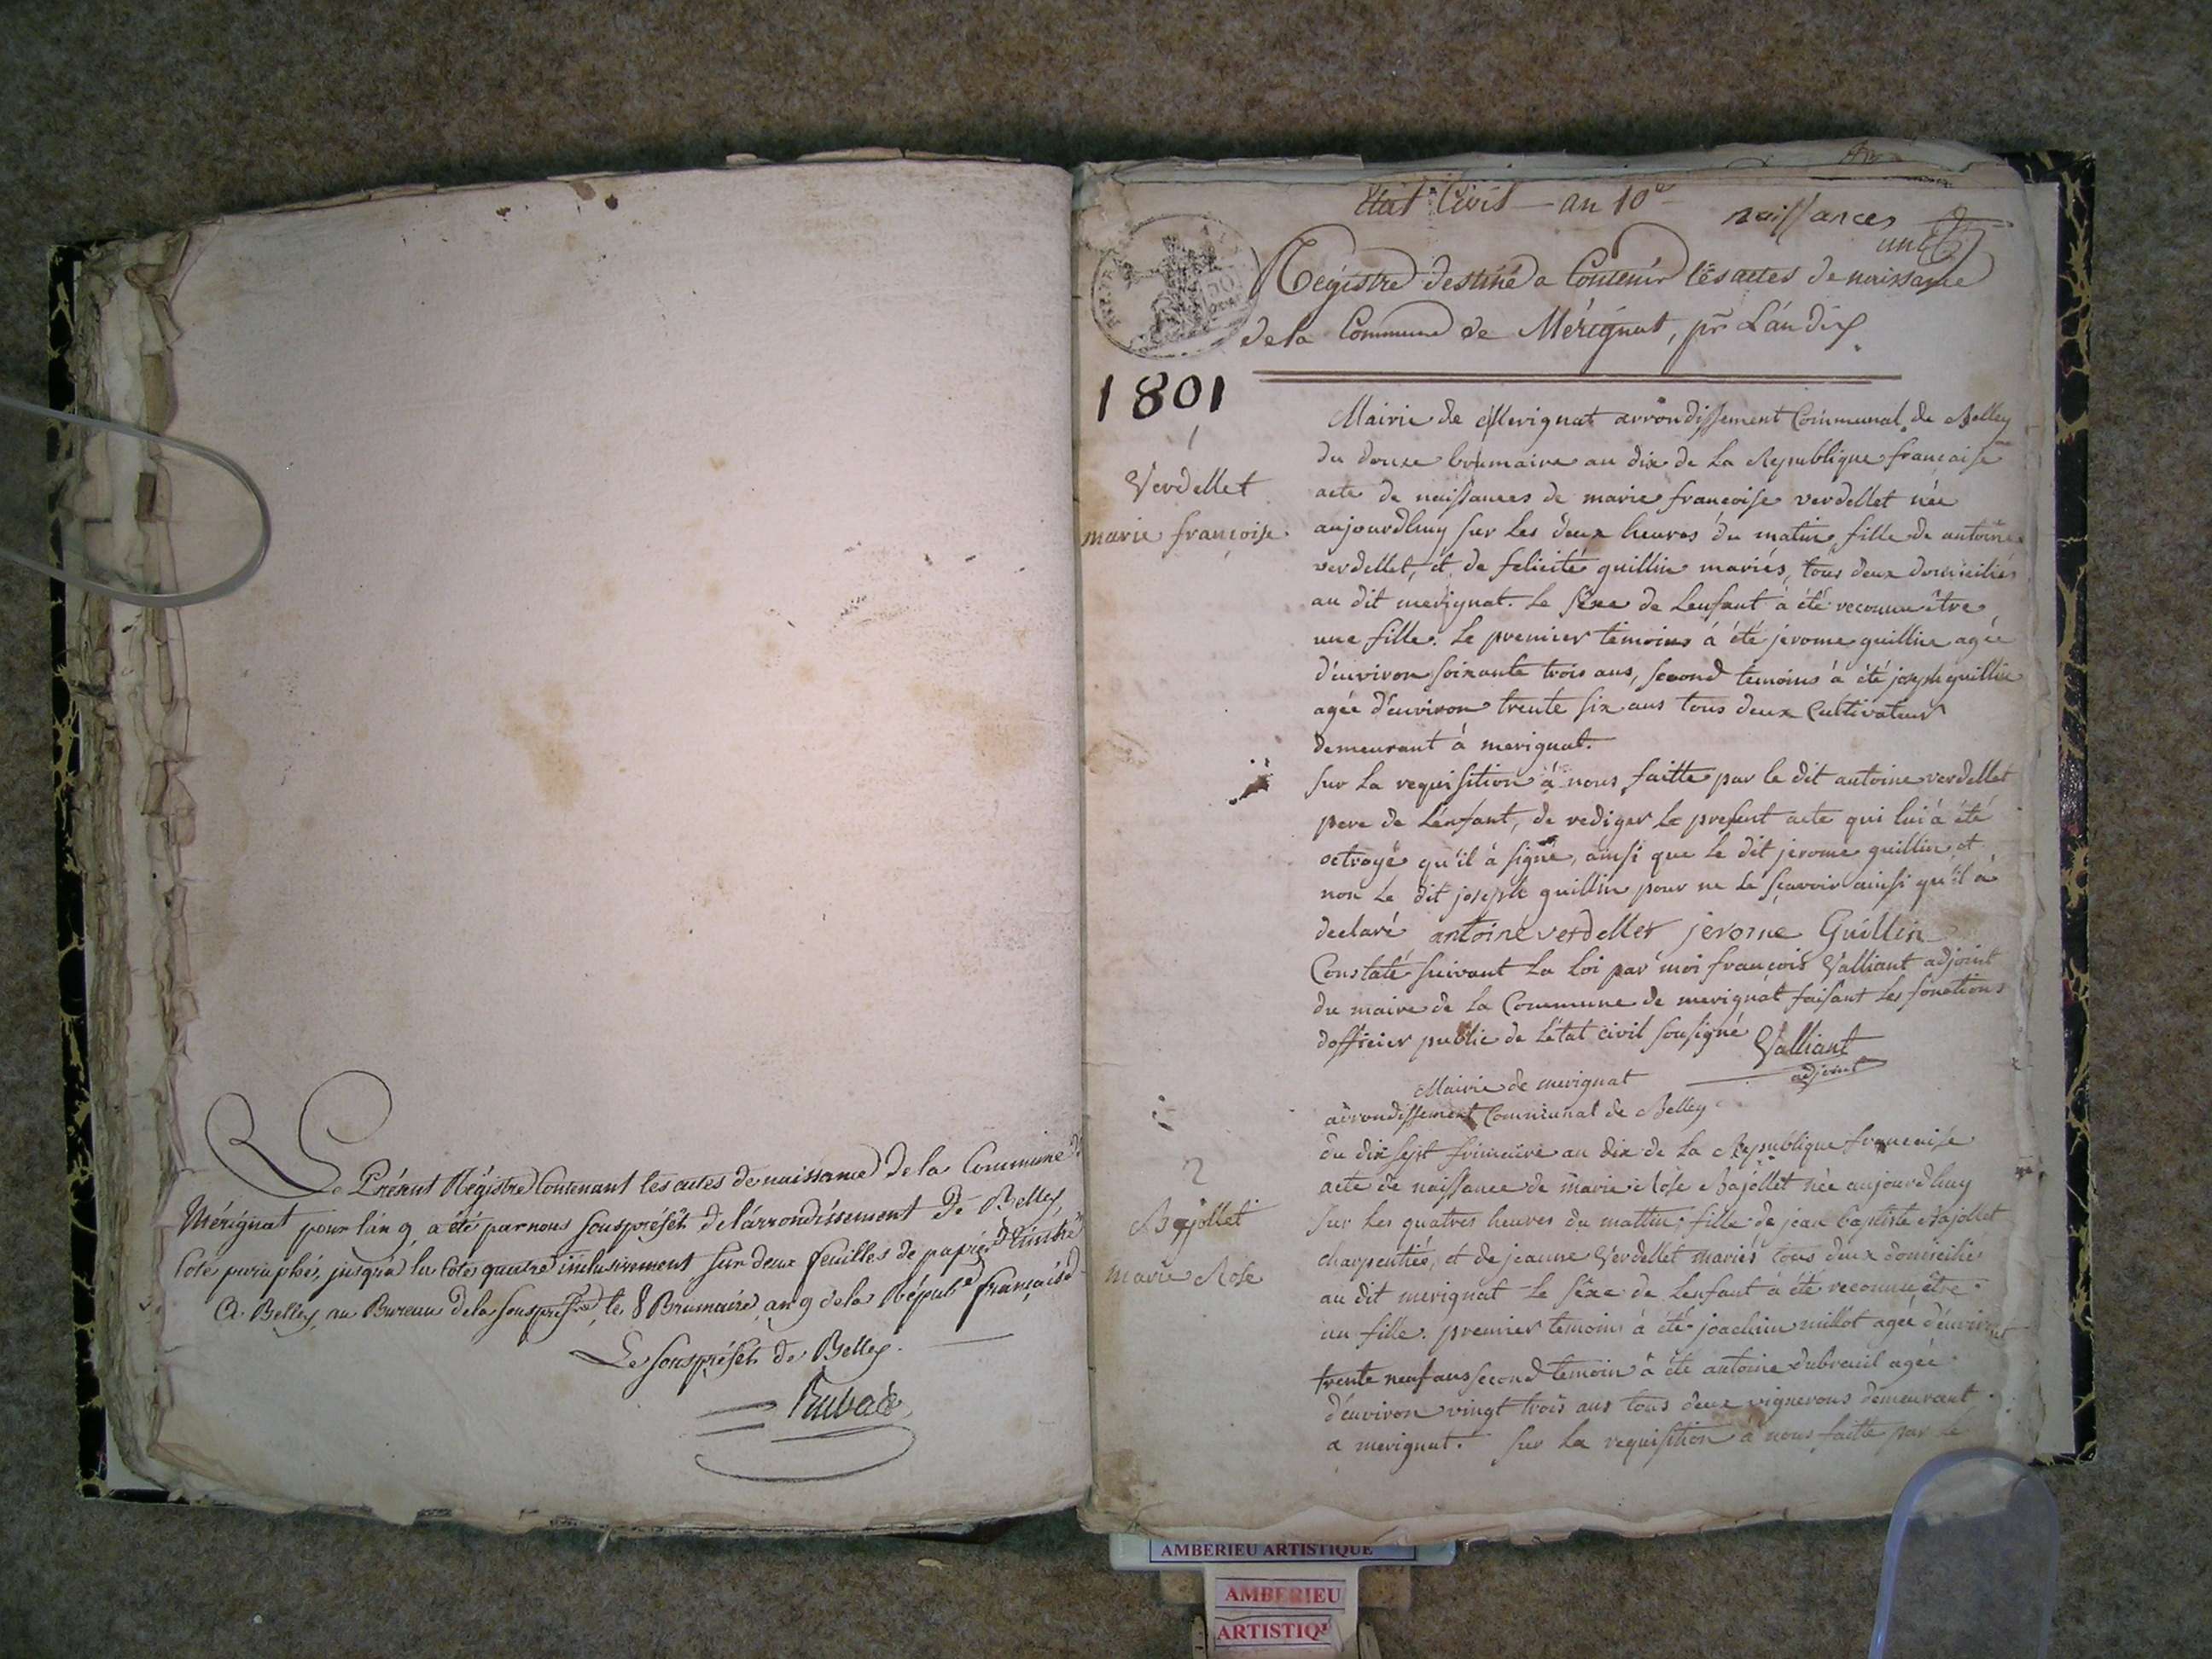 Le Présent Régistre Contenant les actes de naissance de la Commune de
Mérignat pour l'an 9, a été par nous souspréfét de l'arrondissement de Belley,
Coté paraphé, jusqu'à la Cote quatre inclusivement sur deux feuilles de papier timbré
A Belley, au Bureau de la souspréfre, le 8 Brumaire, an 9 de la Répube française
Le souspréfét de Belley.
état Civil - an 10e
naissances
un
Régistre destiné a Contenir les actes de naissance
de la Commune de Mérignat, pr L'an dix.
1801
1
Verdellet
marie françoise.
Mairie de Merignat arrondissement Communal de Belley
du douze brumaire an dix de La Republique française
acte de naissances de marie françoise verdellet née
aujourdhuy sur Les deux heures du matin, fille de antoine
verdellet, et de felicité guillin mariés, tous deux domiciliés
au dit merignat. Le sexe de Lenfant à été reconnu être
une fille. Le premier temoins à été jerome guillin agée
d'environ soixante trois ans, second temoins à été joseph guillin
agée d'environ trente six ans tous deux Cultivateurs
demeurant à merignat.
sur La requisition à nous faitte par le dit antoine verdellet
pere de L'enfant, de rediger Le present acte qui lui à été
octroyé qu'il à signé, ainsi que Le dit jerome guillin et
non Le dit joseph guillin pour ne Le sçavoir ainsi qu'il à
declaré antoine verdellet jerome Guillin
Constaté suivant La Loi par moi françois Valliant adjoint
du maire de La Commune de merignat faisant Les fonctions
dofficier public de L'état civil sousigné Valliant
adjoint
Mairie de merignat
arrondissement Communal de Belley
2
Bajollet
marie Rose
du dix sept frimaire an dix de La Republique française
acte de naissance de marie Rose Bajollet née aujourdhuy
sur Les quatres heures du mattin, fille de jean baptiste Bajollet
charpentié, et de jeanne Verdellet mariés tous deux domicilié
au dit merignat Le sexe de Lenfant à été reconnu être
un fille. premier temoins à été joachim millot agée d'environt
trente neuf ans second temoin à été antoine dubreuil agée
d'environ vingt trois ans tous deux vignerons demeurant
a merignat. sur La requisition à nous faitte par Le
AMBERIEU ARTISTIQUE
AMBERIEU
ARTISTIQU